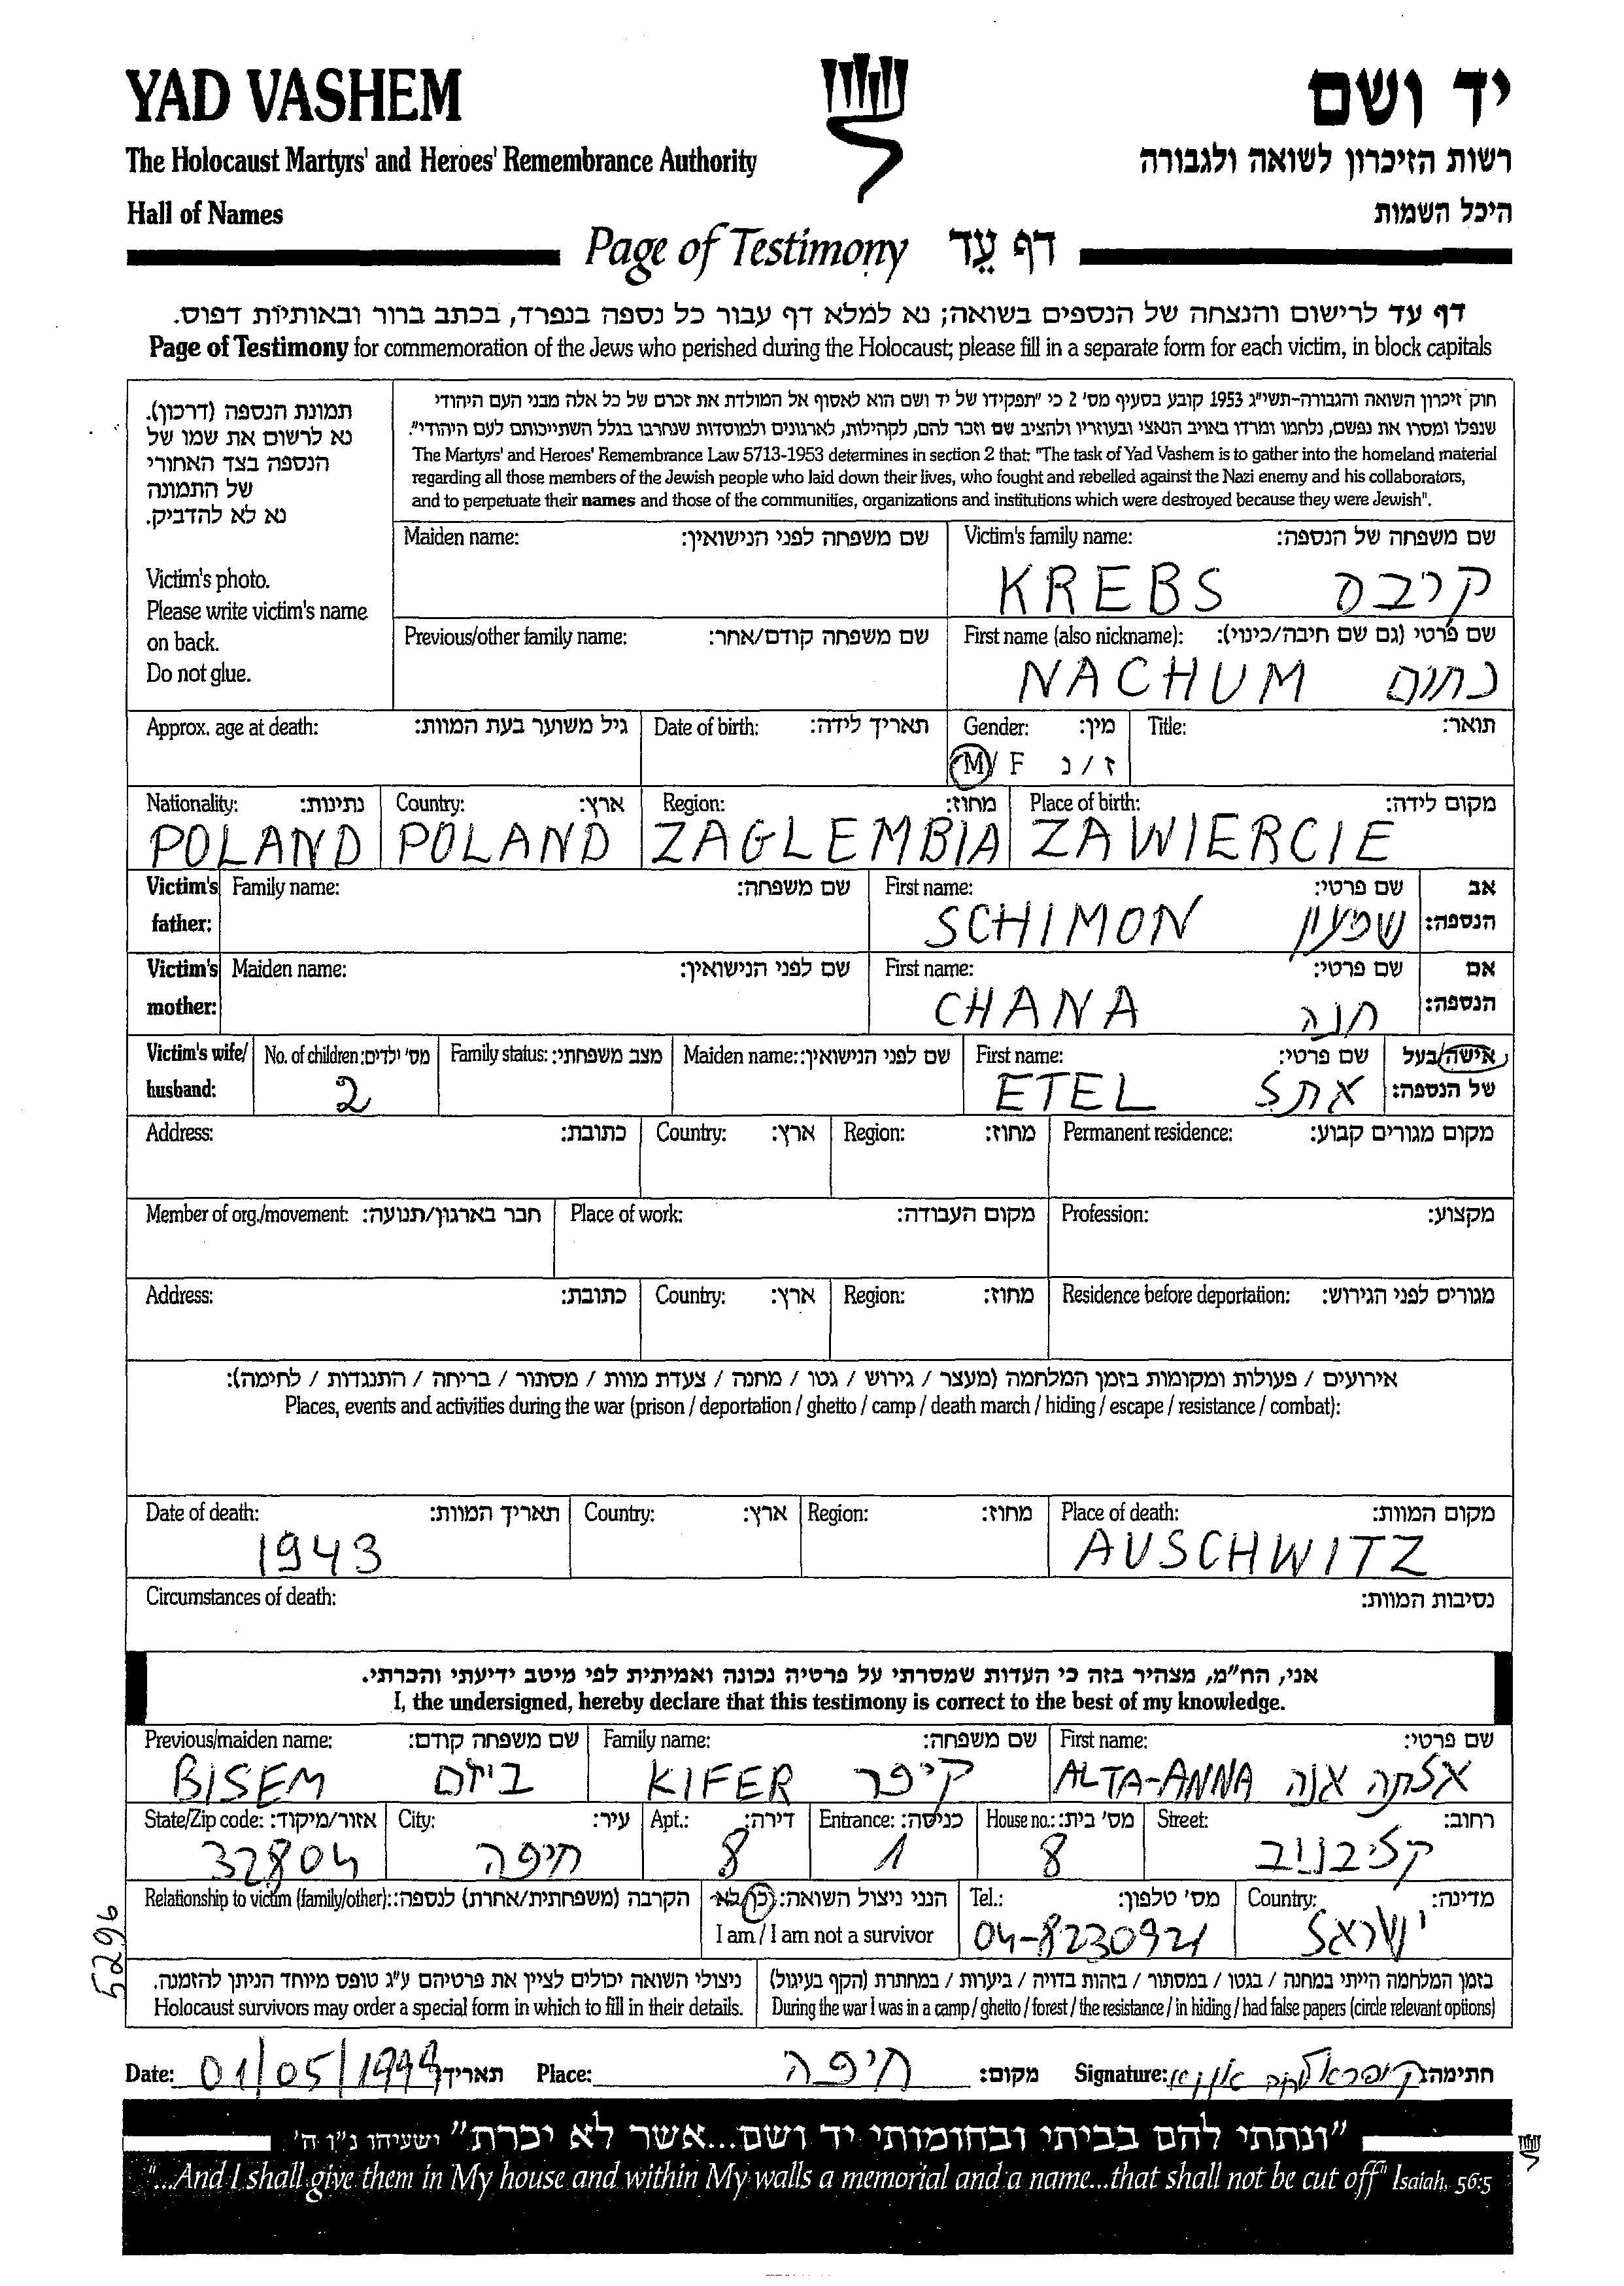 YAD VASHEM יד ושם
The Holocaust Martyrs' and Heroes' Remembrance Authority רשות הזיכרון לשואה ולגבורה
Hall of Names היכל השמות
Page of Testimony דף עֵד
דף עד לרישום והנצחה של הנספים בשואה; נא למלא דף עבור כל נספה בנפרד, בכתב ברור ובאותיות דפוס.
Page of Testimony for commemoration of the Jews who perished during the Holocaust; please fill in a separate form for each victim, in block capitals
תמונת הנספה (דרכון).
נא לרשום את שמו של
הנספה בצד האחורי
של התמונה
נא לא להדביק.
Victim's photo.
Please write victim's name
on back.
Do not glue.
חוק זיכרון השואה והגבורה-תשי"ג 1953 קובע בסעיף מס' 2 כי "תפקידו של יד ושם הוא לאסוף אל המולדת את זכרם של כל אלה מבני העם היהודי
שנפלו ומסרו את נפשם, נלחמו ומרדו באויב הנאצי ובעוזריו ולהציב שם וזכר להם, לקהילות, לארגונים ולמוסדות שנחרבו בגלל השתייכותם לעם היהודי".
The Martyrs' and Heroes' Remembrance Law 5713-1953 determines in section 2 that: "The task of Yad Vashem is to gather into the homeland material
regarding all those members of the Jewish people who laid down their lives, who fought and rebelled against the Nazi enemy and his collaborators,
and to perpetuate their names and those of the communities, organizations and institutions which were destroyed because they were Jewish".
Maiden name: שם משפחה לפני הנישואין: Victim's family name: שם משפחה של הנספה:
KREBS קריבס
Previous/other family name: שם משפחה קודם/אחר: First name (also nickname): שם פרטי (גם שם חיבה/כינוי):
NACHUM נחום
Approx. age at death: גיל משוער בעת המוות: Date of birth: תאריך לידה: Gender: מין: Title: תואר:
M/ F ז / נ
Nationality: נתינות: Country: ארץ: Region: מחוז: Place of birth: מקום לידה:
POLAND POLAND ZAGLEMBIA ZAWIERCIE
Victim's Family name: שם משפחה: First name: שם פרטי: אב
father: SCHIMON שמעון הנספה:
Victim's Maiden name: שם לפני הנישואין: First name: שם פרטי: אם
mother: CHANA חנה הנספה:
Victim's wife/ No. of children: מס' ילדים: Family status: מצב משפחתי: Maiden name: שם לפני הנישואין: First name: שם פרטי: אישה/בעל
husband: 2 ETEL אתל של הנספה:
Address: כתובת: Country: ארץ: Region: מחוז: Permanent residence: מקום מגורים קבוע:
Member of org./movement: חבר בארגון/תנועה: Place of work: מקום העבודה: Profession: מקצוע:
Address: כתובת: Country: ארץ: Region: מחוז: Residence before deportation: מגורים לפני הגירוש:
אירועים / פעולות ומקומות בזמן המלחמה (מעצר / גירוש / גטו / מחנה / צעדת מוות / מסתור / בריחה / התנגדות / לחימה):
Places, events and activities during the war (prison / deportation / ghetto / camp / death march / hiding / escape / resistance / combat):
Date of death: תאריך המוות: Country: ארץ: Region: מחוז: Place of death: מקום המוות:
1943 AUSCHWITZ
Circumstances of death: נסיבות המוות:
אני, הח"מ, מצהיר בזה כי העדות שמסרתי על פרטיה נכונה ואמיתית לפי מיטב ידיעתי והכרתי.
I, the undersigned, hereby declare that this testimony is correct to the best of my knowledge.
Previous/maiden name: שם משפחה קודם: Family name: שם משפחה: First name: שם פרטי:
BISEM ביזם KIFER קיפר ALTA-ANNA אלתה אנה
State/Zip code: אזור/מיקוד: City: עיר: Apt.: דירה: Entrance: כניסה: House no.: מס' בית: Street: רחוב:
32804 חיפה 8 1 8 קליבנוב
Relationship to victim (family/other): הקרבה (משפחתית/אחרת) לנספה: הנני ניצול השואה: כן/לא Tel.: מס' טלפון: Country: מדינה:
I am / I am not a survivor 04-8230921 ישראל
5296
ניצולי השואה יכולים לציין את פרטיהם ע"ג טופס מיוחד הניתן להזמנה. בזמן המלחמה הייתי במחנה / בגטו / במסתור / בזהות בדויה / ביערות / במחתרת (הקף בעיגול)
Holocaust survivors may order a special form in which to fill in their details. During the war I was in a camp / ghetto / forest / the resistance / in hiding / had false papers (circle relevant options)
Date: 01/05/1999 תאריך Place: חיפה מקום: Signature: חתימה:
"ונתתי להם בביתי ובחומותי יד ושם...אשר לא יכרת" ישעיהו נ"ו ה'
"...And I shall give them in My house and within My walls a memorial and a name...that shall not be cut off" Isaiah, 56:5